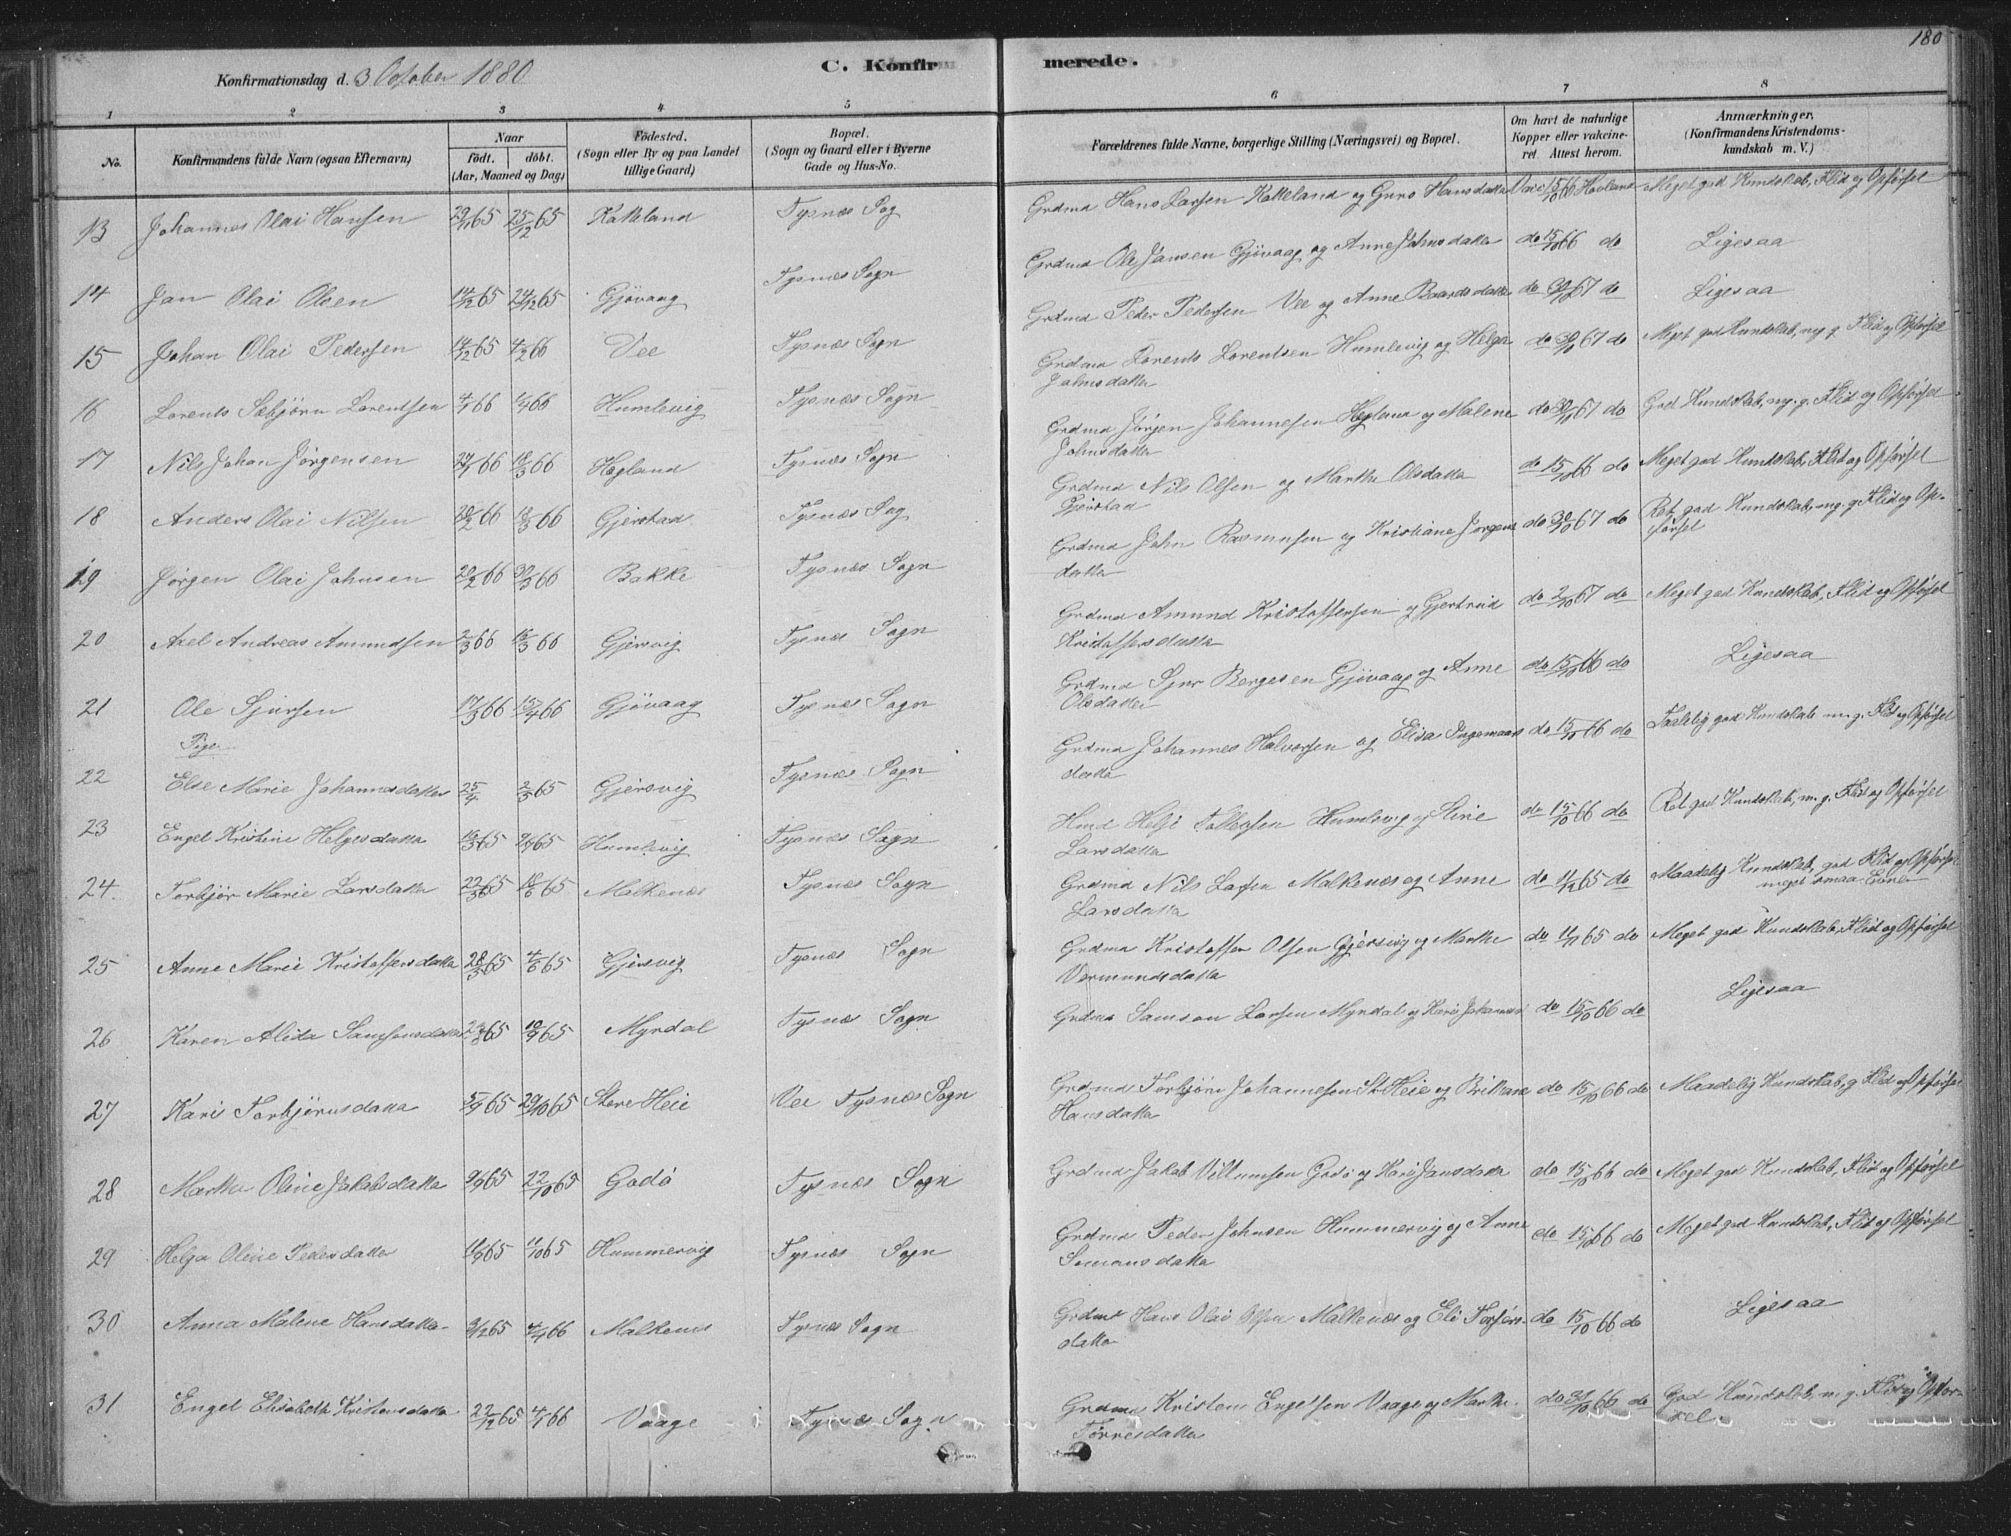 180
Konfirmationsdag d. 3 October 1880
C. Konfirmerede.
1 2 3 4 5 6 7 8
No.
Konfirmandens fulde Navn (ogsaa Efternavn)
Naar
födt. döbt.
(Aar, Maaned og Dag)
Födested.
(Sogn eller By og paa Landet
tillige Gaard)
Bopæl.
(Sogn og Gaard eller i Byerne
Gade og Hus-No.
Forældrenes fulde Navne, borgerlige Stilling (Næringsvei) og Bopæl.
Om havt de naturlige
Kopper eller vakcine-
ret. Attest herom.
Anmærkninger.
(Konfirmandens Kristendoms-
kundskab m. V.)
13 Johannes Olai Hansen 29/11 65 25/12 65 Kalleland Tysnæs Sog Grdmd Hans Larsen Kalleland og Guro Hansdatter Vacc 15/10 66 Hovland Meget god Kundskab, Flid og Opførsel
14 Jan Olai Olsen 14/12 65 24/12 65 Gjøvaag Tysnæs Sogn Grdmd Ole Jansen Gjøvaag og Anne Johnsdatter do 15/10 66 do Ligesaa
15 Johan Olai Pedersen 14/12 65 4/2 66 Vee Tysnæs Sogn Grdmd Peder Pedersen Vee og Anne Baardsdatter do 67 do Ligesaa
16 Lorents Sæbjørn Lorentsen 4/1 66 1/4 66 Humlevig Tysnæs Sogn Grdmd Lorents Lorentsen Humlevig og Helga
Johnsdatter do 67 do Meget god Kundskab, m. g. Flid og Opførsel
17 Nils Johan Jørgensen 66 18/3 66 Hegland Tysnæs Sogn Grdmd Jørgen Johannesen Hegland og Malene
Johnsdatter do 67 do God Kundskab, m. g. Flid og Opførsel
18 Anders Olai Nilsen 66 18/3 66 Gjerstad Tysnæs Sog Grdmd Nils Olsen og Marthe Olsdatter
Gjerstad do 15/10 66 do Meget god Kundskab, Flid og Opførsel
19 Jørgen Olai Johnsen 66 30/3 66 Bakke Tysnæs Sogn Grdmd John Rasmusen og Kristiane Jørgens
datter do 67 do Ret god Kundskab, m. g. Flid og Op-
førsel
20 Axel Andreas Amundsen 2/3 66 66 Gjersvig Tysnæs Sogn Grdmd Amund Kristoffersen og Gjertrud
Kristoffersdatter do 2/10 67 do Meget god Kundskab, Flid og Opførsel
21 Ole Sjursen 17/3 66 15/4 66 Gjøvaag Tysnæs Sogn Grdmd Sjur Bergesen Gjøvaag og Anne
Olsdatter do 15/10 66 do Ligesaa
Piger
22 Else Marie Johannesdatter 25/4 2/5 65 Gjersvig Tysnæs Sogn Grdmd Johannes Halvorsen og Elisa Ingemans
datter do 15/10 66 do Taalelig god Kundskab m. g. Flid og Opførsel
23 Engel Kristine Helgesdatter 65 65 Humlevig Tysnæs Sogn Hmd Helje Tollefsen Humlevig og Stine
Larsdatter do 15/10 66 do Ret god Kundskab, m. g. Flid og Opførsel
24. Torbjør Marie Larsdatter 65 18/6 65 Malkenæs Tysnæs Sogn Grdmd Nils Larsen Malkenæs og Anne
Larsdatter do 65 do Maadelig Kundskab, god Flid og Opførsel
meget smaa Evner
25 Anne Marie Kristoffersdatter 28/5 65 4/6 65 Gjersvig Tysnæs Sogn Grdmd Kristoffer Olsen Gjersvig og Marthe
Vermundsdatter do 65 do Meget god Kundskab, Flid og Opførsel
26 Karen Alida Samsonsdatter 65 10/9 65 Myrdal Tysnæs Sogn Grdmd Samson Larsen Myrdal og Kari Johannes do 15/10 66 do Ligesaa
27 Karis Torbjørnsdatter 5/9 65 29/10 65 Store Heie Vee Tysnæs Sogn Grdmd Torbjørn Johannesen St. Heie og Brithe
Hansdatter do 15/10 66 do Maadelig Kundskab, g. Flid og Opførsel
28 Martha Oline Jakobsdatter 65 22/10 65 Godø Tysnæs Sogn Grdmd Jakob Villumsen Godø og Kari Jansdatter do 15/10 66 do Meget god Kundskab, Flid og Opførsel
29 Helga Oline Pedersdatter 65 65 Hummervig Tysnæs Sogn Grdmd Peder Johnsen Hummervig og Anne
Simonsdatter do 15/10 66 do Meget god Kundskab, Flid og Opførsel
30 Anna Malene Hansdatter 9/12 65 66 Malkenes Tysnæs Sogn Grdmd Hans Olai Olsen Malkenæs og Eli
datter do 15/10 66 do Ligesaa
31 Engel Elisabeth Kristensdatter 22/12 65 66 Vaage Tysnæs Sogn Grdmd Kristen Engelsen Vaage og Marthe
Tørresdatter do 66 do God Kundskab, m. g. Flid og Opfør-
sel